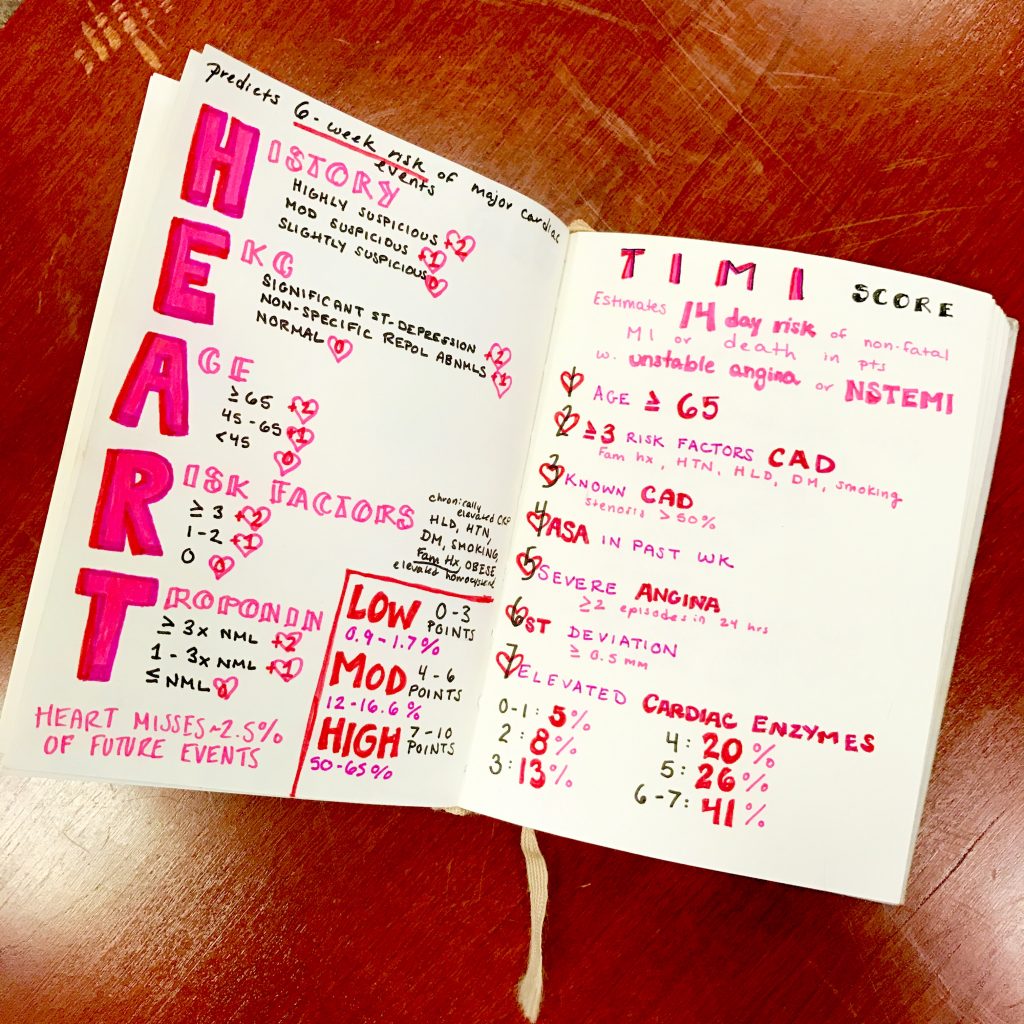 predicts 6-week risk of major cardiac
events
HISTORY
HIGHLY SUSPICIOUS +2
MOD SUSPICIOUS +1
SLIGHTLY SUSPICIOUS 0
EKG
SIGNIFICANT ST-DEPRESSION +2
NON-SPECIFIC REPOL ABNMLS +1
NORMAL 0
AGE
≥65 +2
45-65 +1
<45 0
RISK FACTORS
≥3 +2
1-2 +1
0 0
chronically
elevated CRP
HLD, HTN,
DM, SMOKING,
Fam Hx, OBESE
elevated homocysteine
TROPONIN
≥ 3x NML +2
1-3x NML +1
≤ NML 0
HEART MISSES ~2.5%
OF FUTURE EVENTS
LOW 0-3 POINTS
0.9-1.7%
MOD 4-6 POINTS
12-16.6%
HIGH 7-10 POINTS
50-65%
TIMI SCORE
Estimates 14 day risk of non-fatal
MI or death in pts
w. unstable angina or NSTEMI
1 AGE ≥ 65
2 ≥3 RISK FACTORS CAD
Fam hx, HTN, HLD, DM, smoking
3 KNOWN CAD
stenosis >50%
4 ASA IN PAST WK
5 SEVERE ANGINA
≥2 episodes in 24 hrs
6 ST DEVIATION
≥ 0.5 mm
7 ELEVATED CARDIAC ENZYMES
0-1: 5%
2: 8%
3: 13%
4: 20%
5: 26%
6-7: 41%